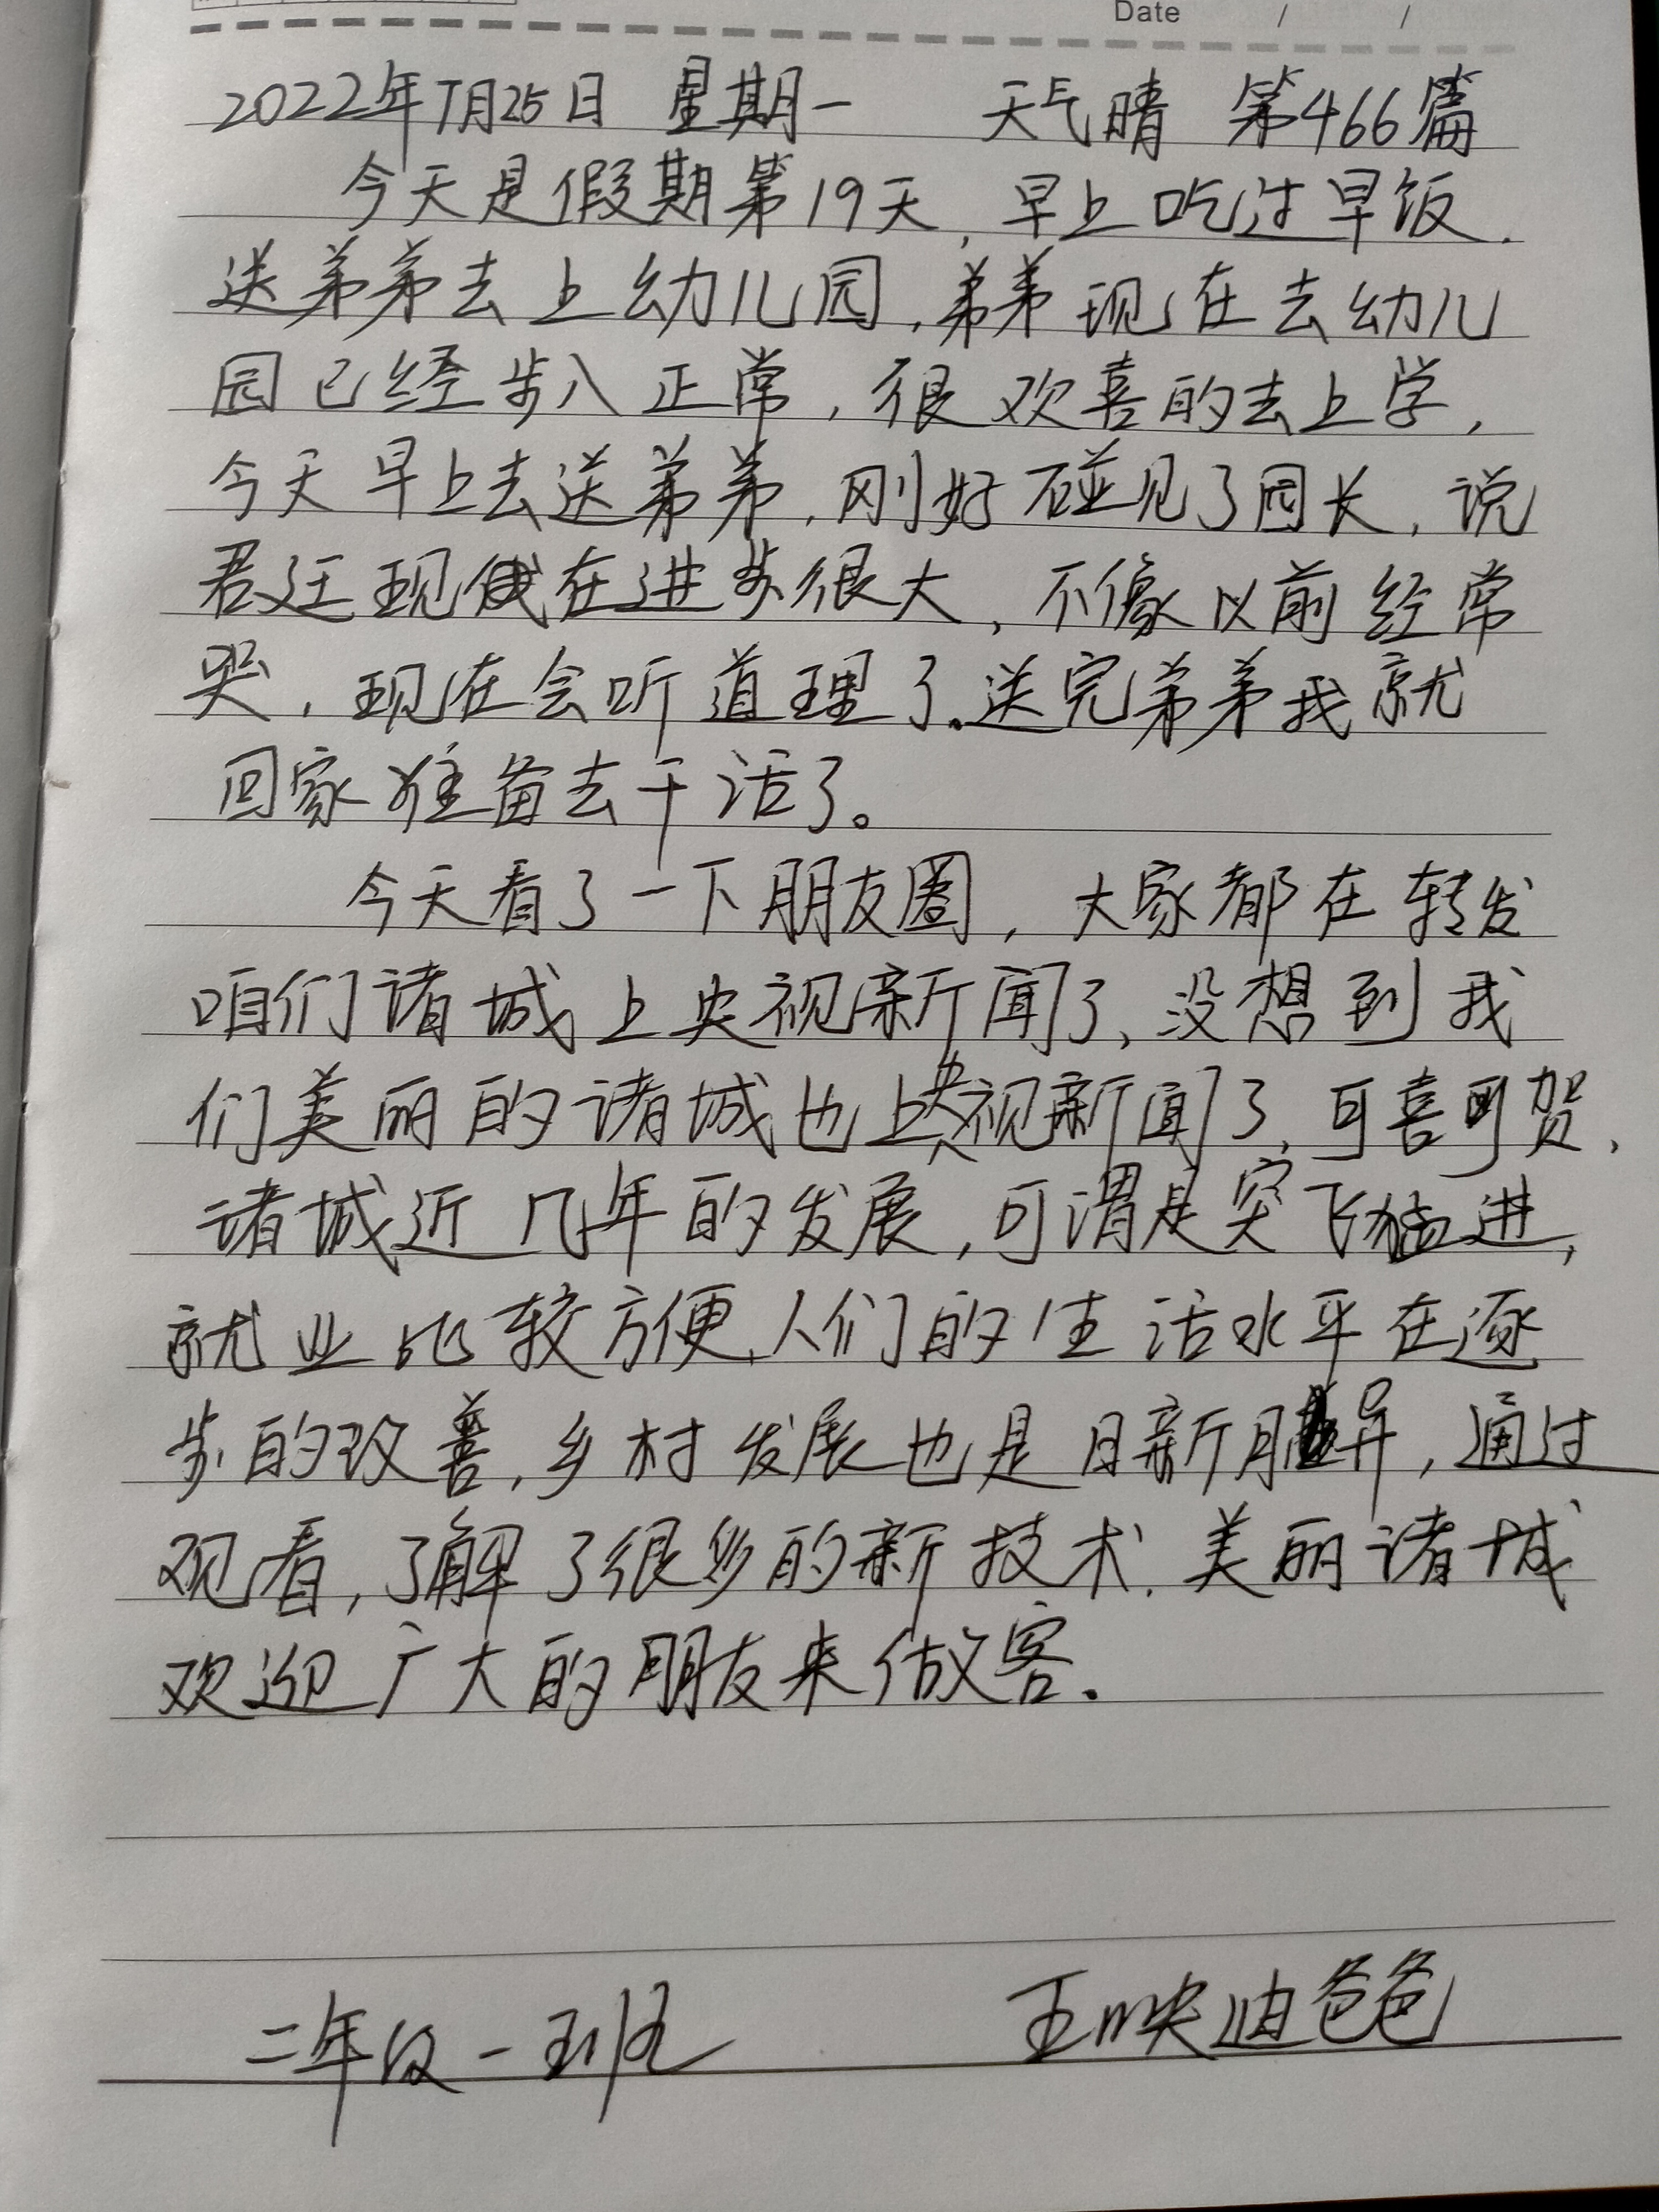 Date / /
2022年7月25日 星期一 天气晴 第466篇
今天是假期第19天,早上吃过早饭.
送弟弟去上幼儿园,弟弟现在去幼儿
园已经步入正常,很欢喜的去上学,
今天早上去送弟弟,刚好碰见了园长,说
君廷现在进步很大,不像以前经常
哭,现在会听道理了。送完弟弟我就
回家准备去干活了。
今天看了一下朋友圈,大家都在转发
咱们诸城上央视新闻了,没想到我
们美丽的诸城也上央视新闻了,可喜可贺,
诸城近几年的发展,可谓是突飞猛进,
就业比较方便,人们的生活水平在逐
步的改善,乡村发展也是日新月异,通过
观看,了解了很多的新技术.美丽诸城
欢迎广大的朋友来做客.
二年级一班 王映迪爸爸